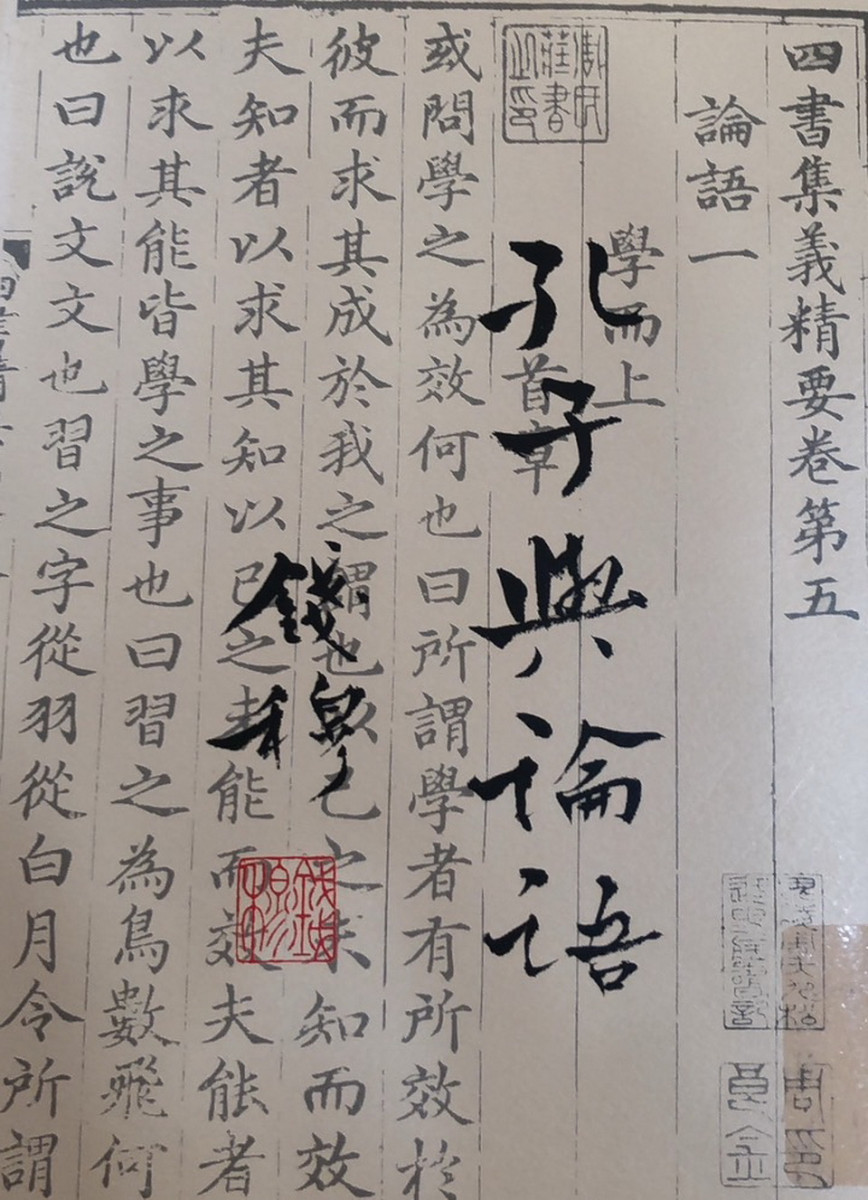 四書集義精要卷第五
論語一
學而上
首章
孔子與論語
或問學之為效何也曰所謂學者有所效於
彼而求其成於我之謂也以己之未知而效
錢穆
夫知者以求其知以己之未能而效夫能者
以求其能皆學之事也曰習之為鳥數飛何
也曰說文文也習之字從羽從白月令所謂